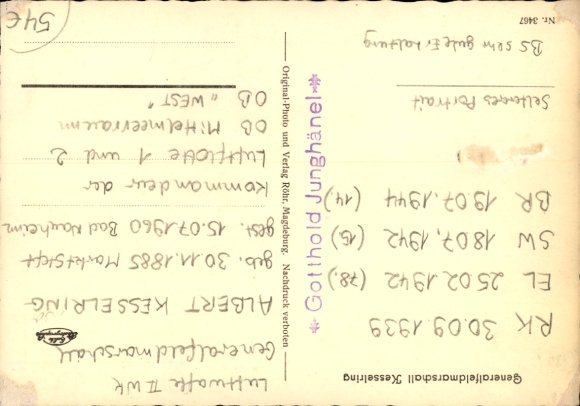 Generalfeldmarschall Kesselring
RK 30.09.1939
EL 25.02.1942 (78.)
SW 18.07.1942 (15.)
BR 19.07.1944 (14)
Selteneres Portrait
BS sehr gute Erhaltung
Nr. 3467
* Gotthold Junghänel *
Original-Photo und Verlag Röhr, Magdeburg. Nachdruck verboten
Luftwaffe II WK
Generalfeldmarschall
ALBERT KESSELRING
geb. 30.11.1885 Marktsteft
gest. 15.07.1960 Bad Nauheim
Kommandeur der
Luftflotte 1 und 2
OB Mittelmeerraum
OB „WEST"
54€